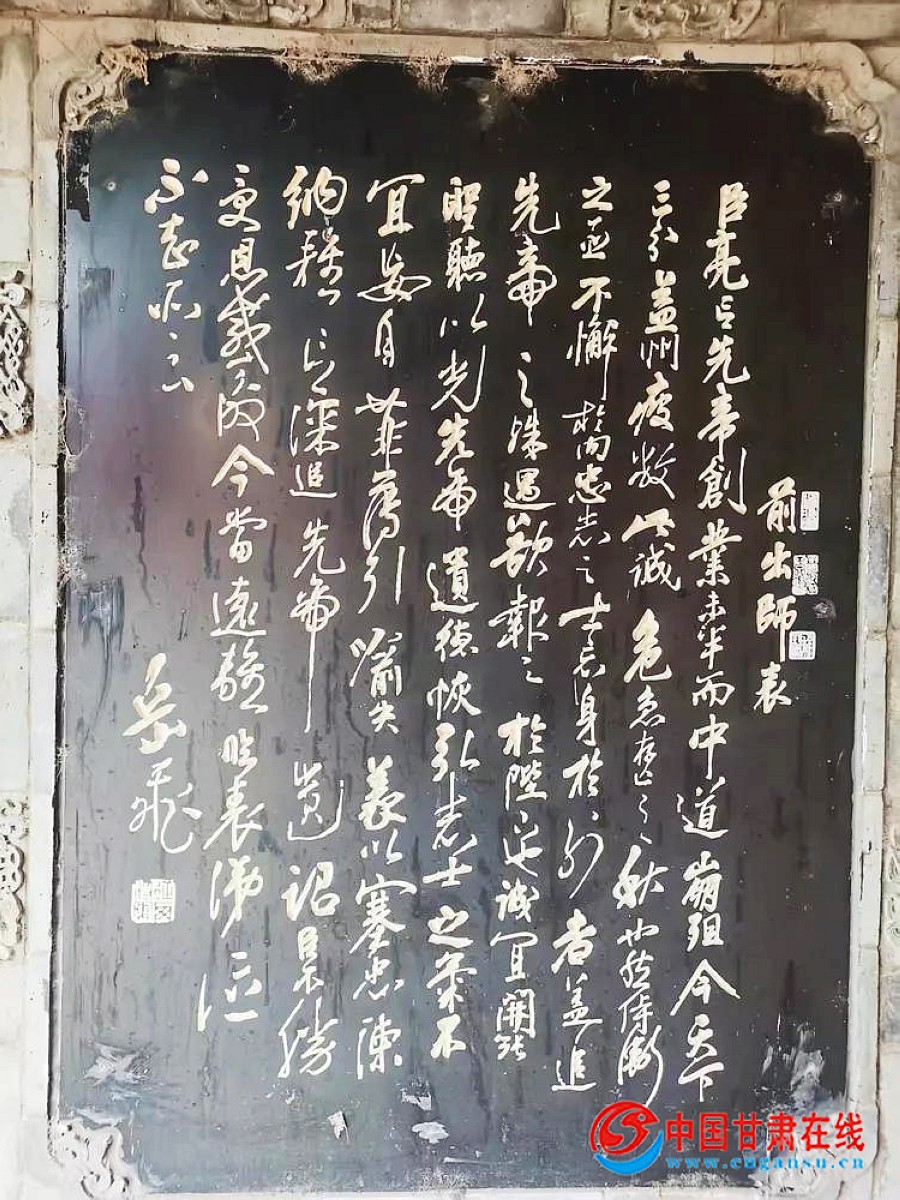 前出師表
臣亮言先帝創業未半而中道崩殂今天下
三分益州疲敝此誠危急存亡之秋也然侍衛
之臣不懈於內忠志之士忘身於外者蓋追
先帝之殊遇欲報之於陛下也誠宜開張
聖聽以光先帝遺德恢弘志士之氣不
宜妄自菲薄引喻失義以塞忠諫
納雅言深追先帝遺詔臣不勝
受恩感激今當遠離臨表涕泣
不知所云
岳飛
中国甘肃在线
www.cngansu.cn